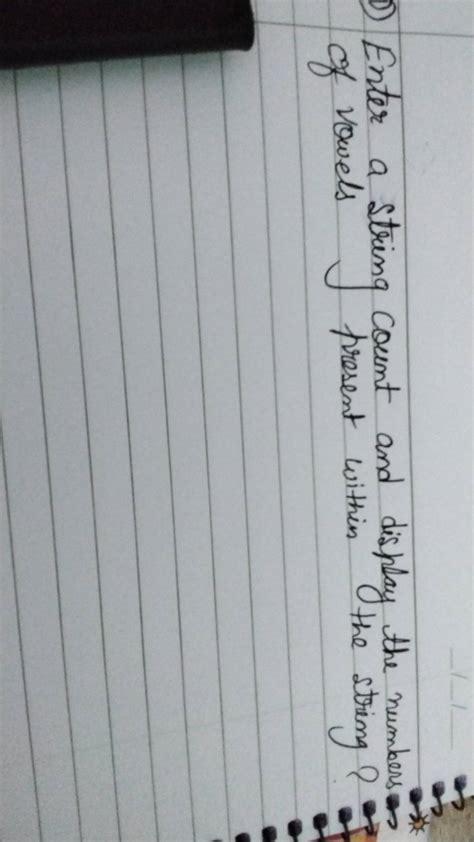 ① Enter a string count and display the numbers
of vowels present within the string?